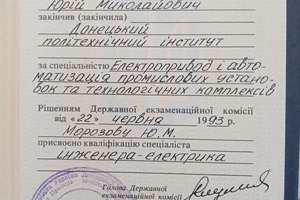 Юрій Миколайович
закінчив (закінчила)
Донецький
політехнічний інститут
за спеціальністю Електропривод і авто-
матизація промислових устано-
вок та технологічних комплексів
Рішенням Державної екзаменаційної комісії
від «22» червня 1993 р.
Морозову Ю.М.
присвоєно кваліфікацію спеціаліста
інженера-електрика
Голова Державної
екзаменаційної комісії